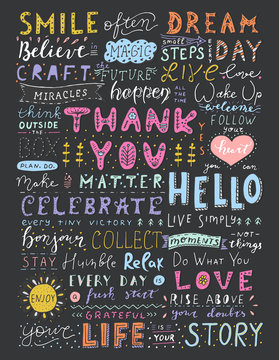 SMILE often DREAM
Believe in MAGIC small STEPS every DAY
CRAFT the FUTURE LIVE love
MIRACLES happen ALL THE TIME Wake Up
think OUTSIDE the BOX THANK YOU welcome FOLLOW your heart
PLAN. DO. you can
Make it MATTER HELLO
CELEBRATE
EVERY TINY VICTORY LIVE SIMPLY
Bonjour COLLECT moments NOT things
STAY Humble Relax Do What You LOVE
ENJOY EVERY DAY is a fresh start
RISE ABOVE your doubts
GRATEFUL
your LIFE IS YOUR STORY